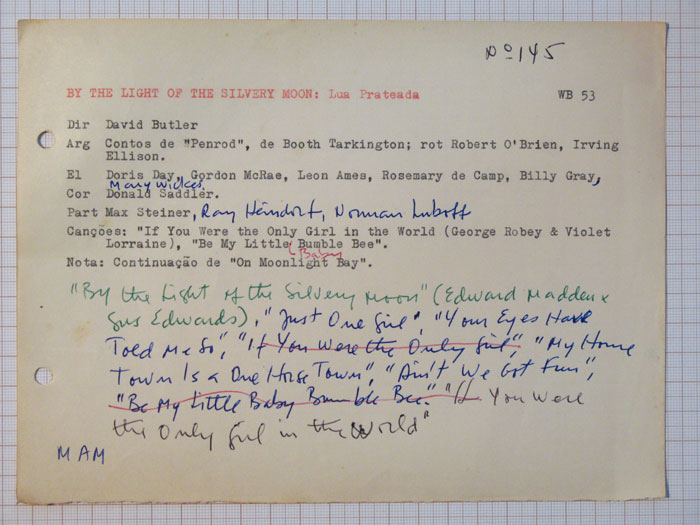 Nº 145
BY THE LIGHT OF THE SILVERY MOON: Lua Prateada WB 53
Dir David Butler
Arg Contos de "Penrod", de Booth Tarkington; rot Robert O'Brien, Irving
Ellison.
El Doris Day, Gordon McRae, Leon Ames, Rosemary de Camp, Billy Gray,
Mary Wickes.
Cor Donald Saddler.
Part Max Steiner, Ray Heindorf, Norman Luboff
Canções: "If You Were the Only Girl in the World (George Robey & Violet
Lorraine), "Be My Little Bumble Bee".
(Baby
Nota: Continuação de "On Moonlight Bay".
"By the Light of the Silvery Moon" (Edward Madden x
Gus Edwards), "Just One Girl", "Your Eyes Have
Told Me So", "If You Were the Only Girl", "My Home
Town Is a One Horse Town", "Ain't We Got Fun",
"Be My Little Baby Bumble Bee". "If You Were
the Only Girl in the World"
MAM